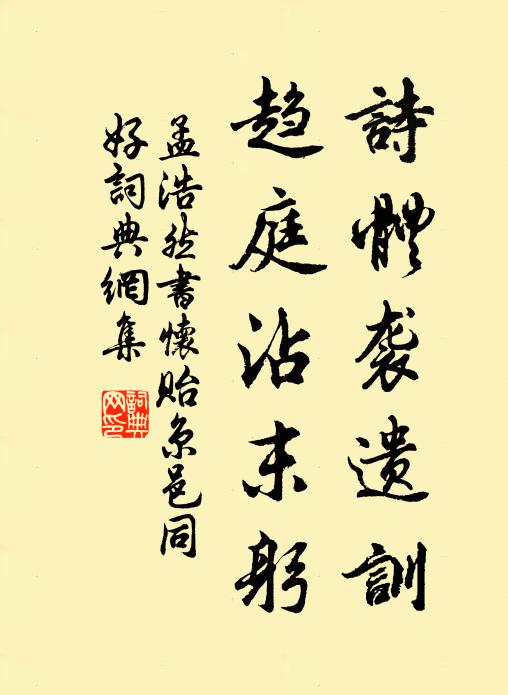 詩體袭遗訓
趋庭沾末躬
孟浩然書懷貽京邑同
好詞典網集
詞典
网印